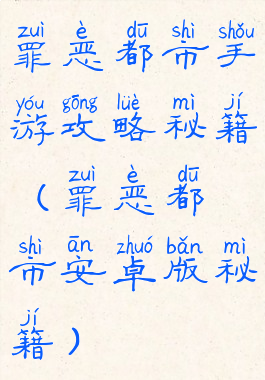 zuì è dū shì shǒu
罪恶都市手
yóu gōng lüè mì jí
游攻略秘籍
zuì è dū
（罪恶都
shì ān zhuó bǎn mì
市安卓版秘
jí
籍）